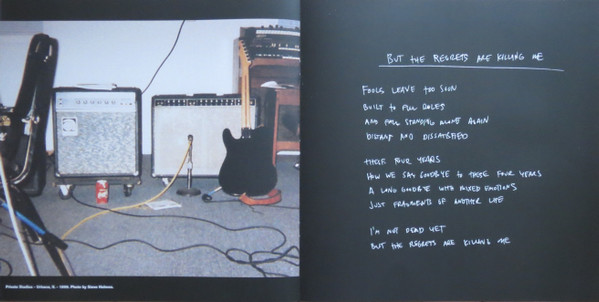 Private Studios - Urbana, IL - 1999. Photo by Steve Holmes.
BUT THE REGRETS ARE KILLING ME
FOOLS LEAVE TOO SOON
BUILT TO FILL ROLES
AND FALL STANDING ALONE AGAIN
DISTANT AND DISSATISFIED
THESE FOUR YEARS
HOW WE SAY GOODBYE TO THOSE FOUR YEARS
A LONG GOODBYE WITH MIXED EMOTIONS
JUST FRAGMENTS OF ANOTHER LIFE
I'M NOT DEAD YET
BUT THE REGRETS ARE KILLING ME